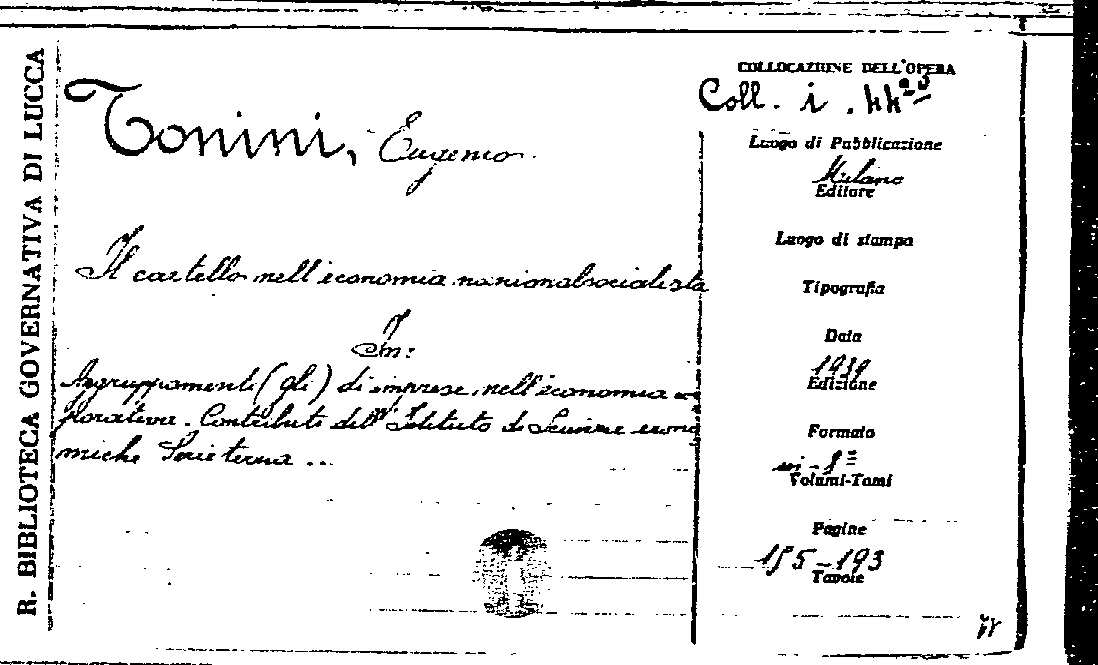 R. BIBLIOTECA GOVERNATIVA DI LUCCA
Tonini, Eugenio
Il cartello nell'economia nazionalsocialista
In:
Aggruppamenti (gli) di imprese nell'economia cor
porativa. Contributi dell'Istituto di Scienze econo
miche Serie terza ...
COLLOCAZIONE DELL'OPERA
Coll. i. 44
Luogo di Pubblicazione
Milano
Editore
Luogo di stampa
Tipografia
Data
1939
Edizione
Formato
in-8º
Volumi-Tomi
Pagine
155-193
Tavole